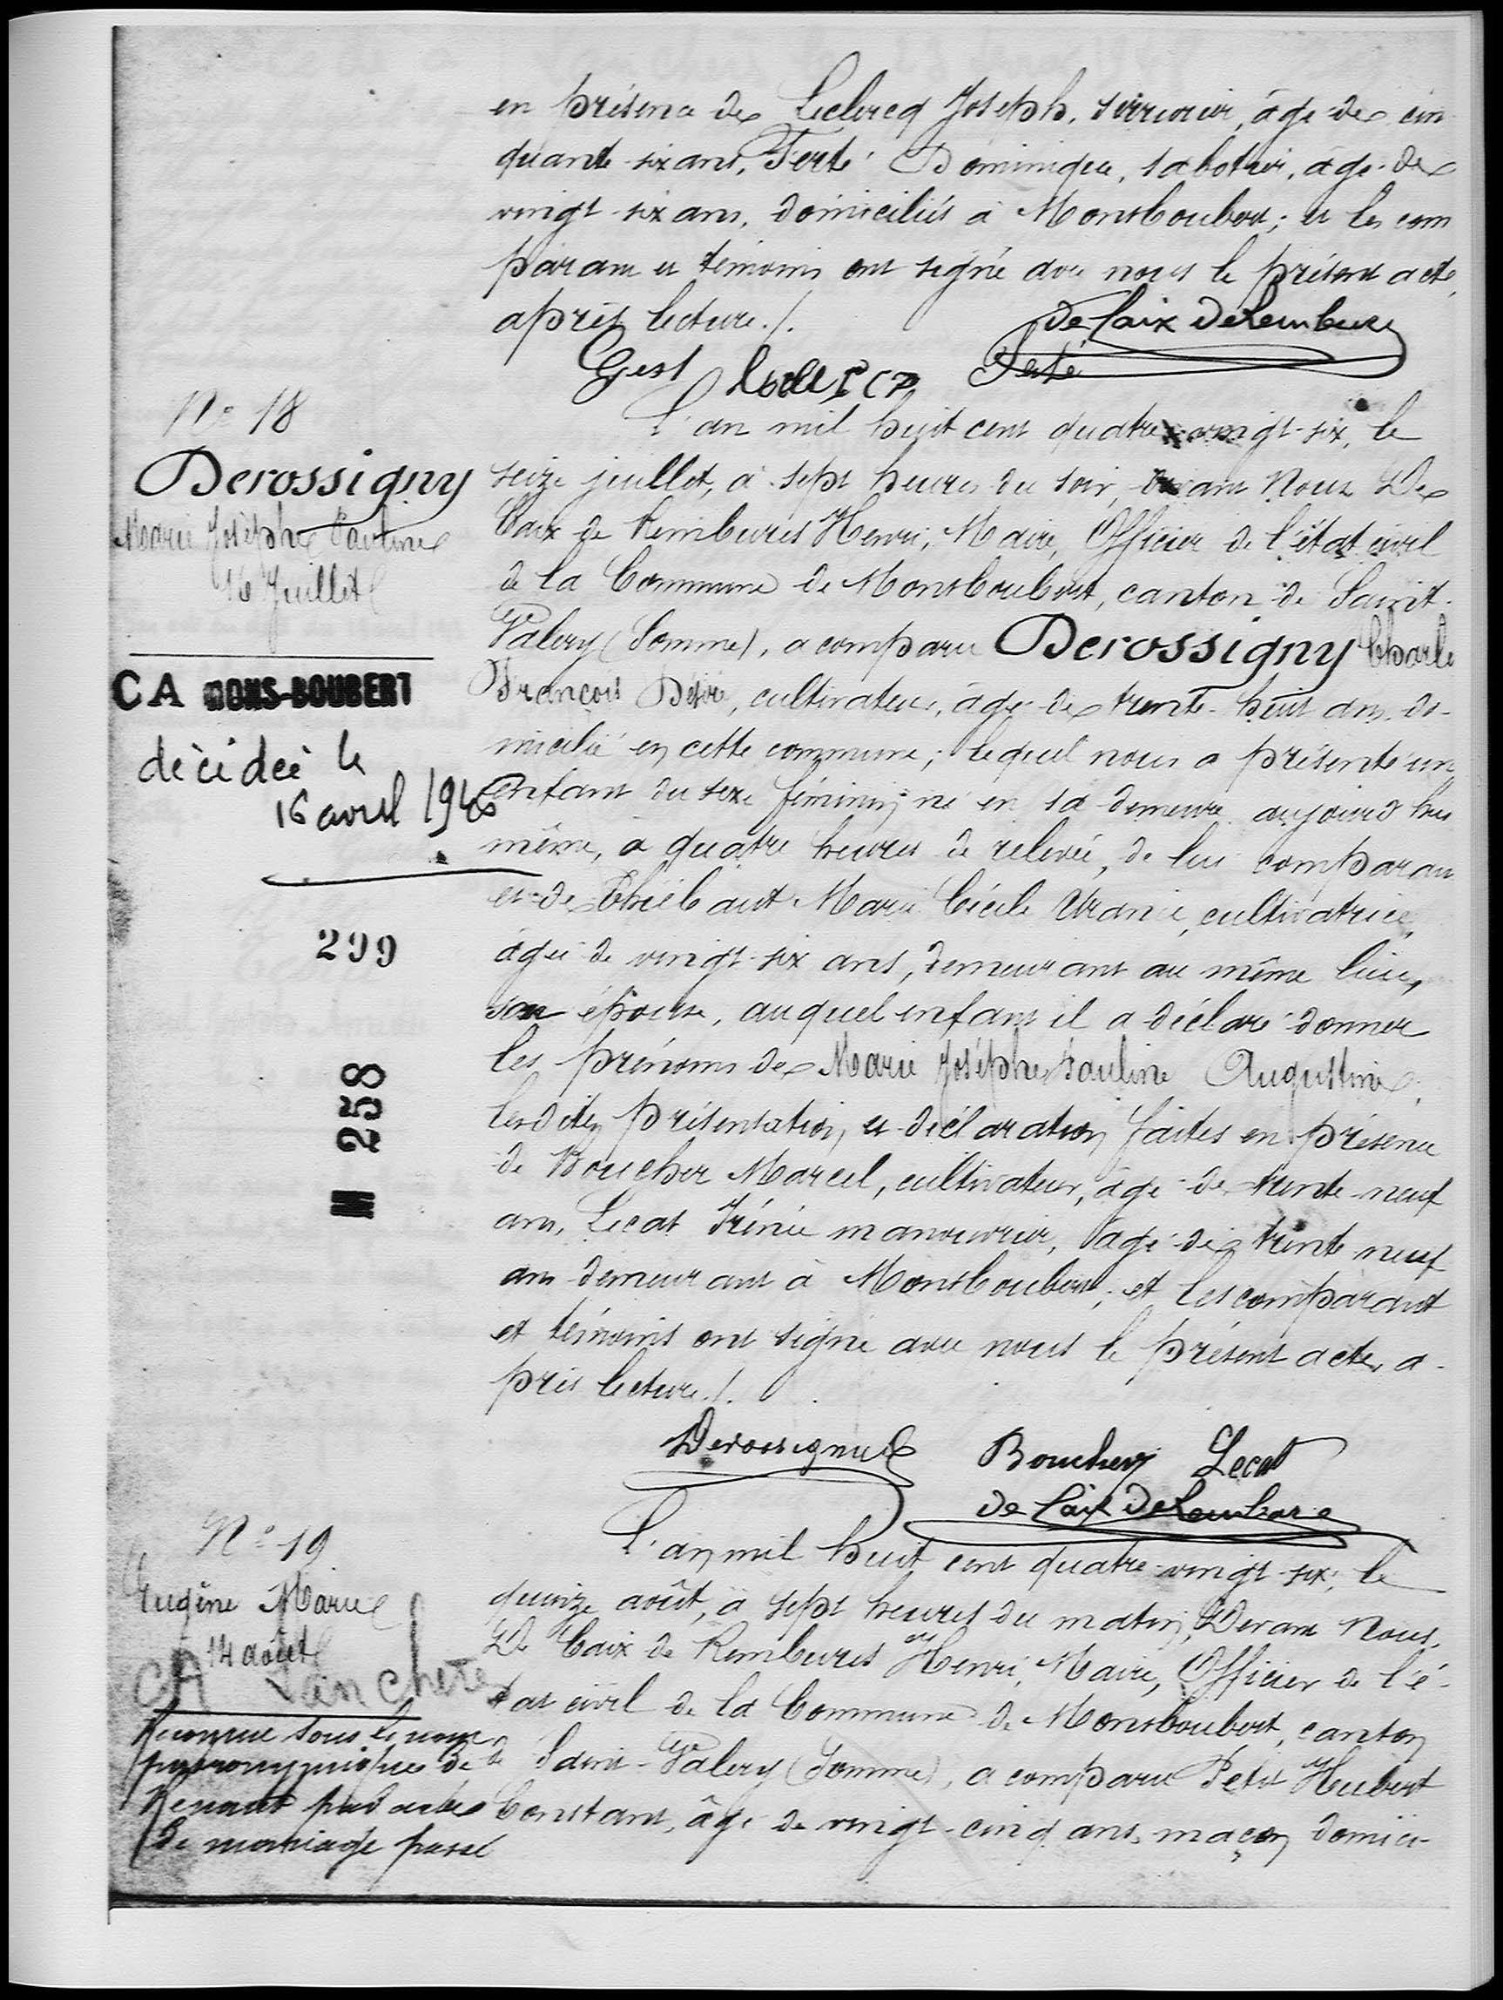 en présence de Leclercq Joseph, serrurier, âgé de cin
quante-six ans, Ferté Dominique, sabotier, âgé de
vingt-six ans, domiciliés à Monsboubert; et les com
parant et témoins ont signé avec nous le présent acte,
après lecture./.
de Caix de Rembures
Gest Leclercq Ferté
N° 18
Derossigny
Marie Josèphe Pauline
16 Juillet
CA MONS-BOUBERT
décédée le
16 avril 1946
299
M 258
L'an mil huit cent quatre-vingt-six, le
seize juillet, à sept heures du soir, devant Nous De
Caix de Rembures Henri, Maire, Officier de l'état civil
de la Commune de Monsboubert, canton de Saint-
Valery (Somme), a comparu Derossigny Charles
François Désiré, cultivateur, âgé de trente-huit ans, do-
micilié en cette commune; lequel nous a présenté un
enfant du sexe féminin, né en sa demeure aujourd'hui
même, à quatre heures de relevée, de lui comparant
et de Thiébaut Marie Cécile Uranie, cultivatrice,
âgée de vingt-six ans, demeurant au même lieu,
son épouse, auquel enfant il a déclaré donner
les prénoms de Marie Josèphe Pauline Augustine;
lesdites présentation et déclaration faites en présence
de Boucher Marcel, cultivateur, âgé de trente-neuf
ans, Lecat Irénée manouvrier, âgé de trente neuf
ans demeurant à Monsboubert; et les comparant
et témoins ont signé avec nous le présent acte, a-
près lecture./.
Derossigny Boucher Lecat
de Caix de Rembures
N° 19
Eugène Marie
14 août
CA Sanchete
Reconnue sous le nom
patronymique de
Renaut par acte
de mariage passé
L'an mil huit cent quatre-vingt-six, le
quinze août, à sept heures du matin, Devant Nous,
De Caix de Rembures Henri, Maire, Officier de l'é-
tat civil de la Commune de Monsboubert, canton
de Saint-Valery (Somme), a comparu Petit Hubert
Constant, âgé de vingt-cinq ans, maçon, domici-